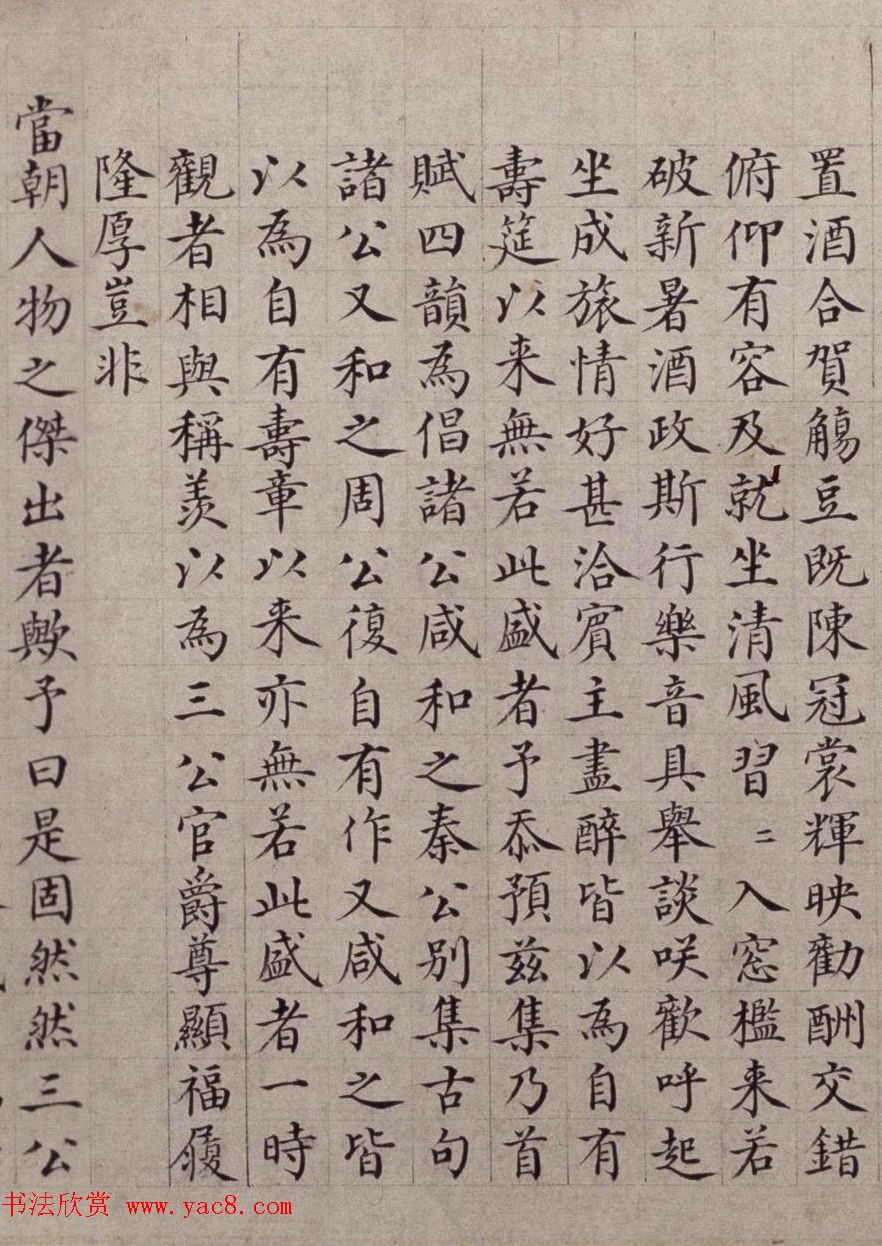 置酒合賀觴豆既陳冠裳輝映勸酬交錯
俯仰有容及就坐清風習〻入窓檻来若
破新暑酒政斯行樂音具舉談咲歡呼起
坐成旅情好甚洽賓主盡醉皆以為自有
壽筵以来無若此盛者予忝預茲集乃首
賦四韻為倡諸公咸和之秦公别集古句
諸公又和之周公復自有作又咸和之皆
以為自有壽章以来亦無若此盛者一時
觀者相與稱羨以為三公官爵尊顯福履
隆厚豈非
當朝人物之傑出者歟予曰是固然然三公
书法欣赏 www.yac8.com